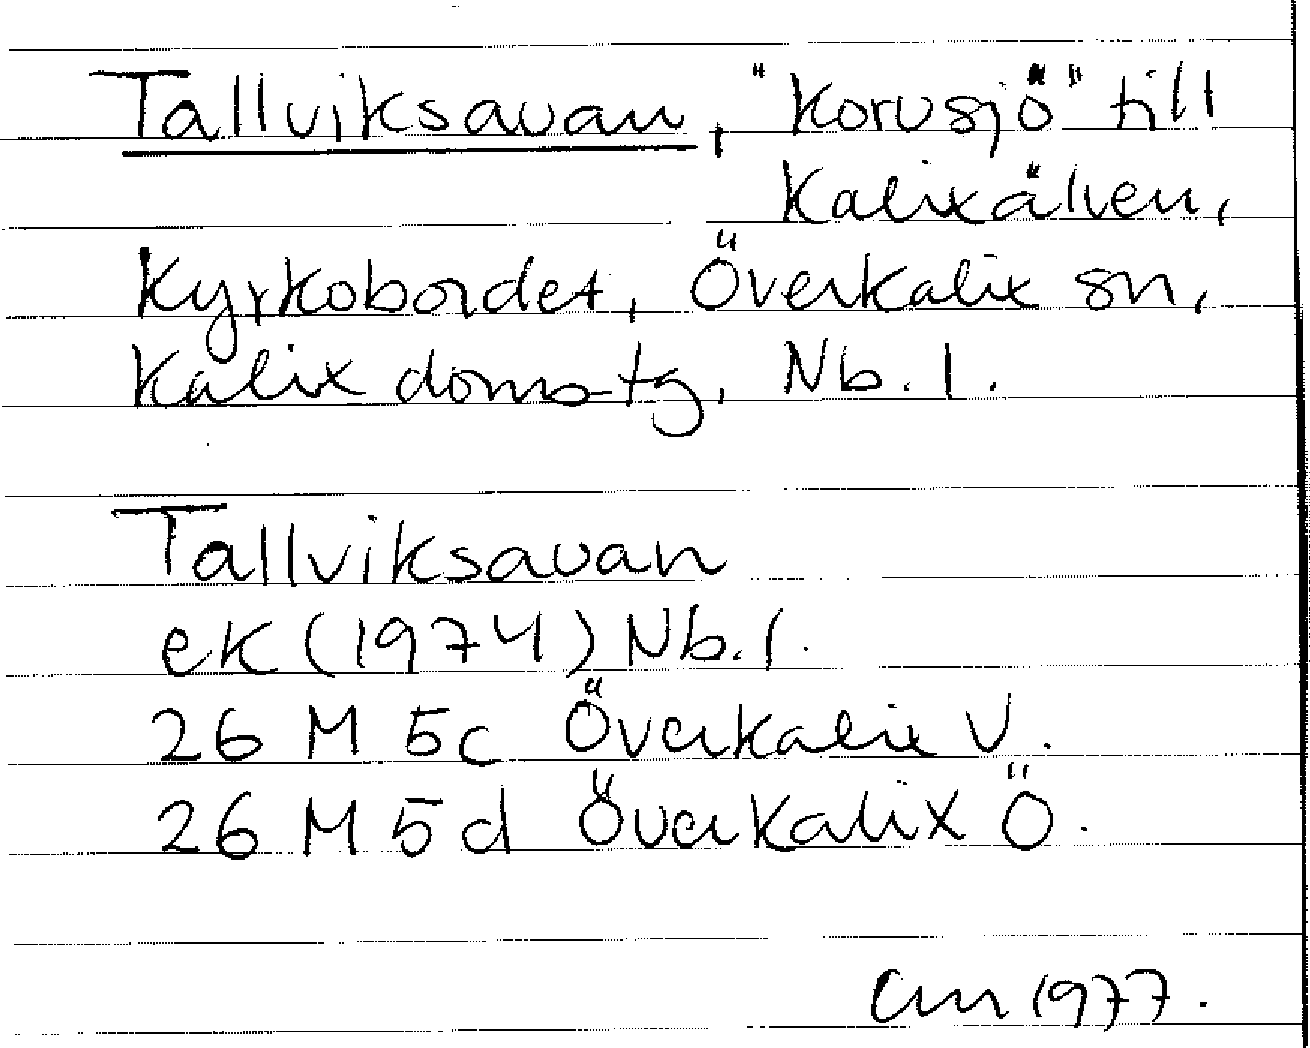 Tallviksavan, "Korvsjö" till
Kalixälven,
Kyrkobordet, Överkalix sn,
Kalix doms-tg, Nb. l.
Tallviksavan
ek (1974) Nb. l.
26 M 5c Överkalix V.
26 M 5d Överkalix Ö.
1977.